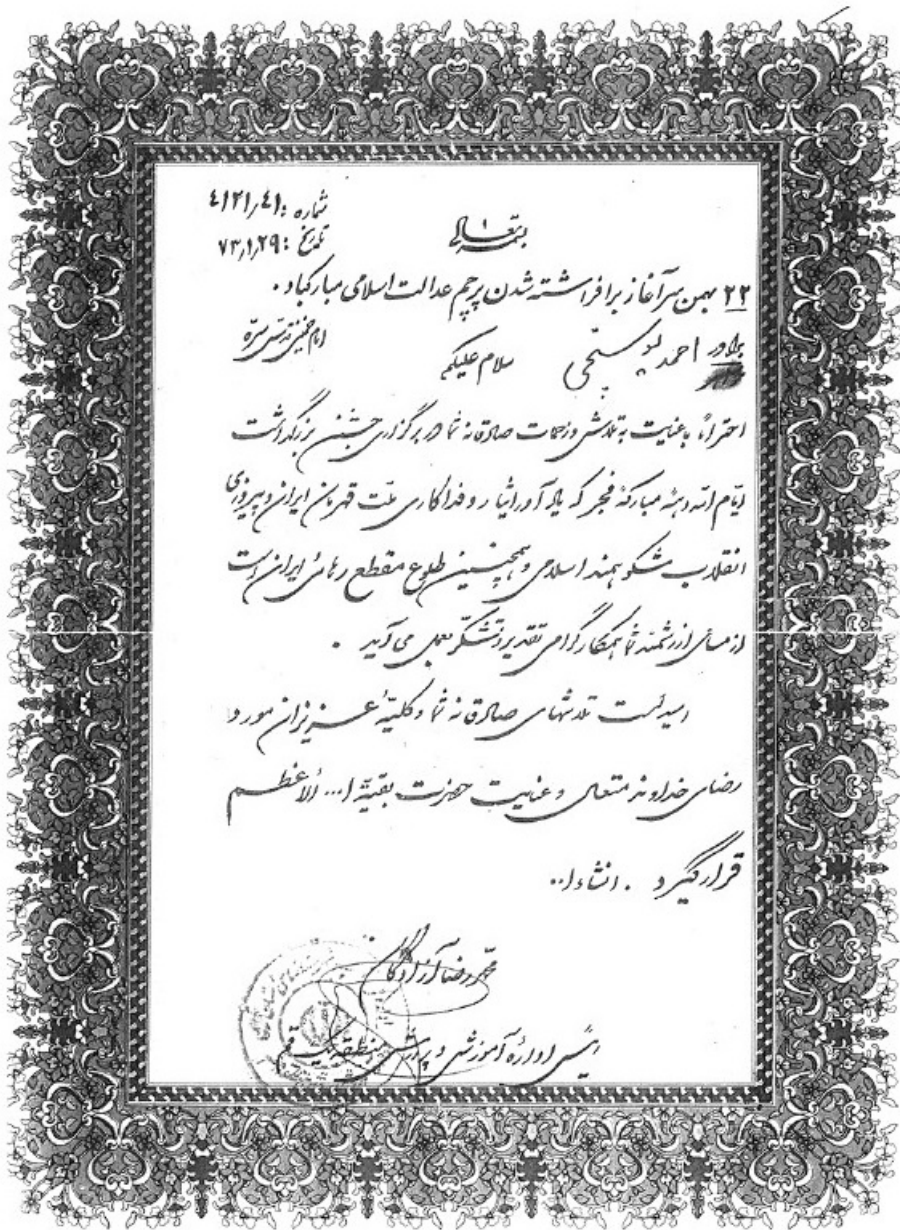 بسمه تعالی
شماره: ٤١٢١/٤١
تاریخ: ٧٣/١/٢٩
٢٢ بهمن سرآغاز برافراشته شدن پرچم عدالت اسلامی مبارکباد.
امام خمینی قدس سره
برادر احمد
سلام علیکم
احتراماً با عنایت به تلاش و زحمات صادقانه شما در برگزاری جشن بزرگداشت
ایام اله دهه مبارکه فجر که یادآور ایثار و فداکاری ملت قهرمان ایران و پیروزی
انقلاب شکوهمند اسلامی و همچنین طلوع مقطع رهائی ایران است
از مساعی ارزشمند شما همکار گرامی تقدیر و تشکر بعمل می آید.
امید است تلاشهای صادقانه شما و کلیه عزیزان مورد
رضای خداوند متعال و عنایت حضرت بقیة ا... الأعظم
قرار گیرد. انشاءا..
محمدرضا آزادگان
رئیس اداره آموزش و پرورش منطقه یک قم